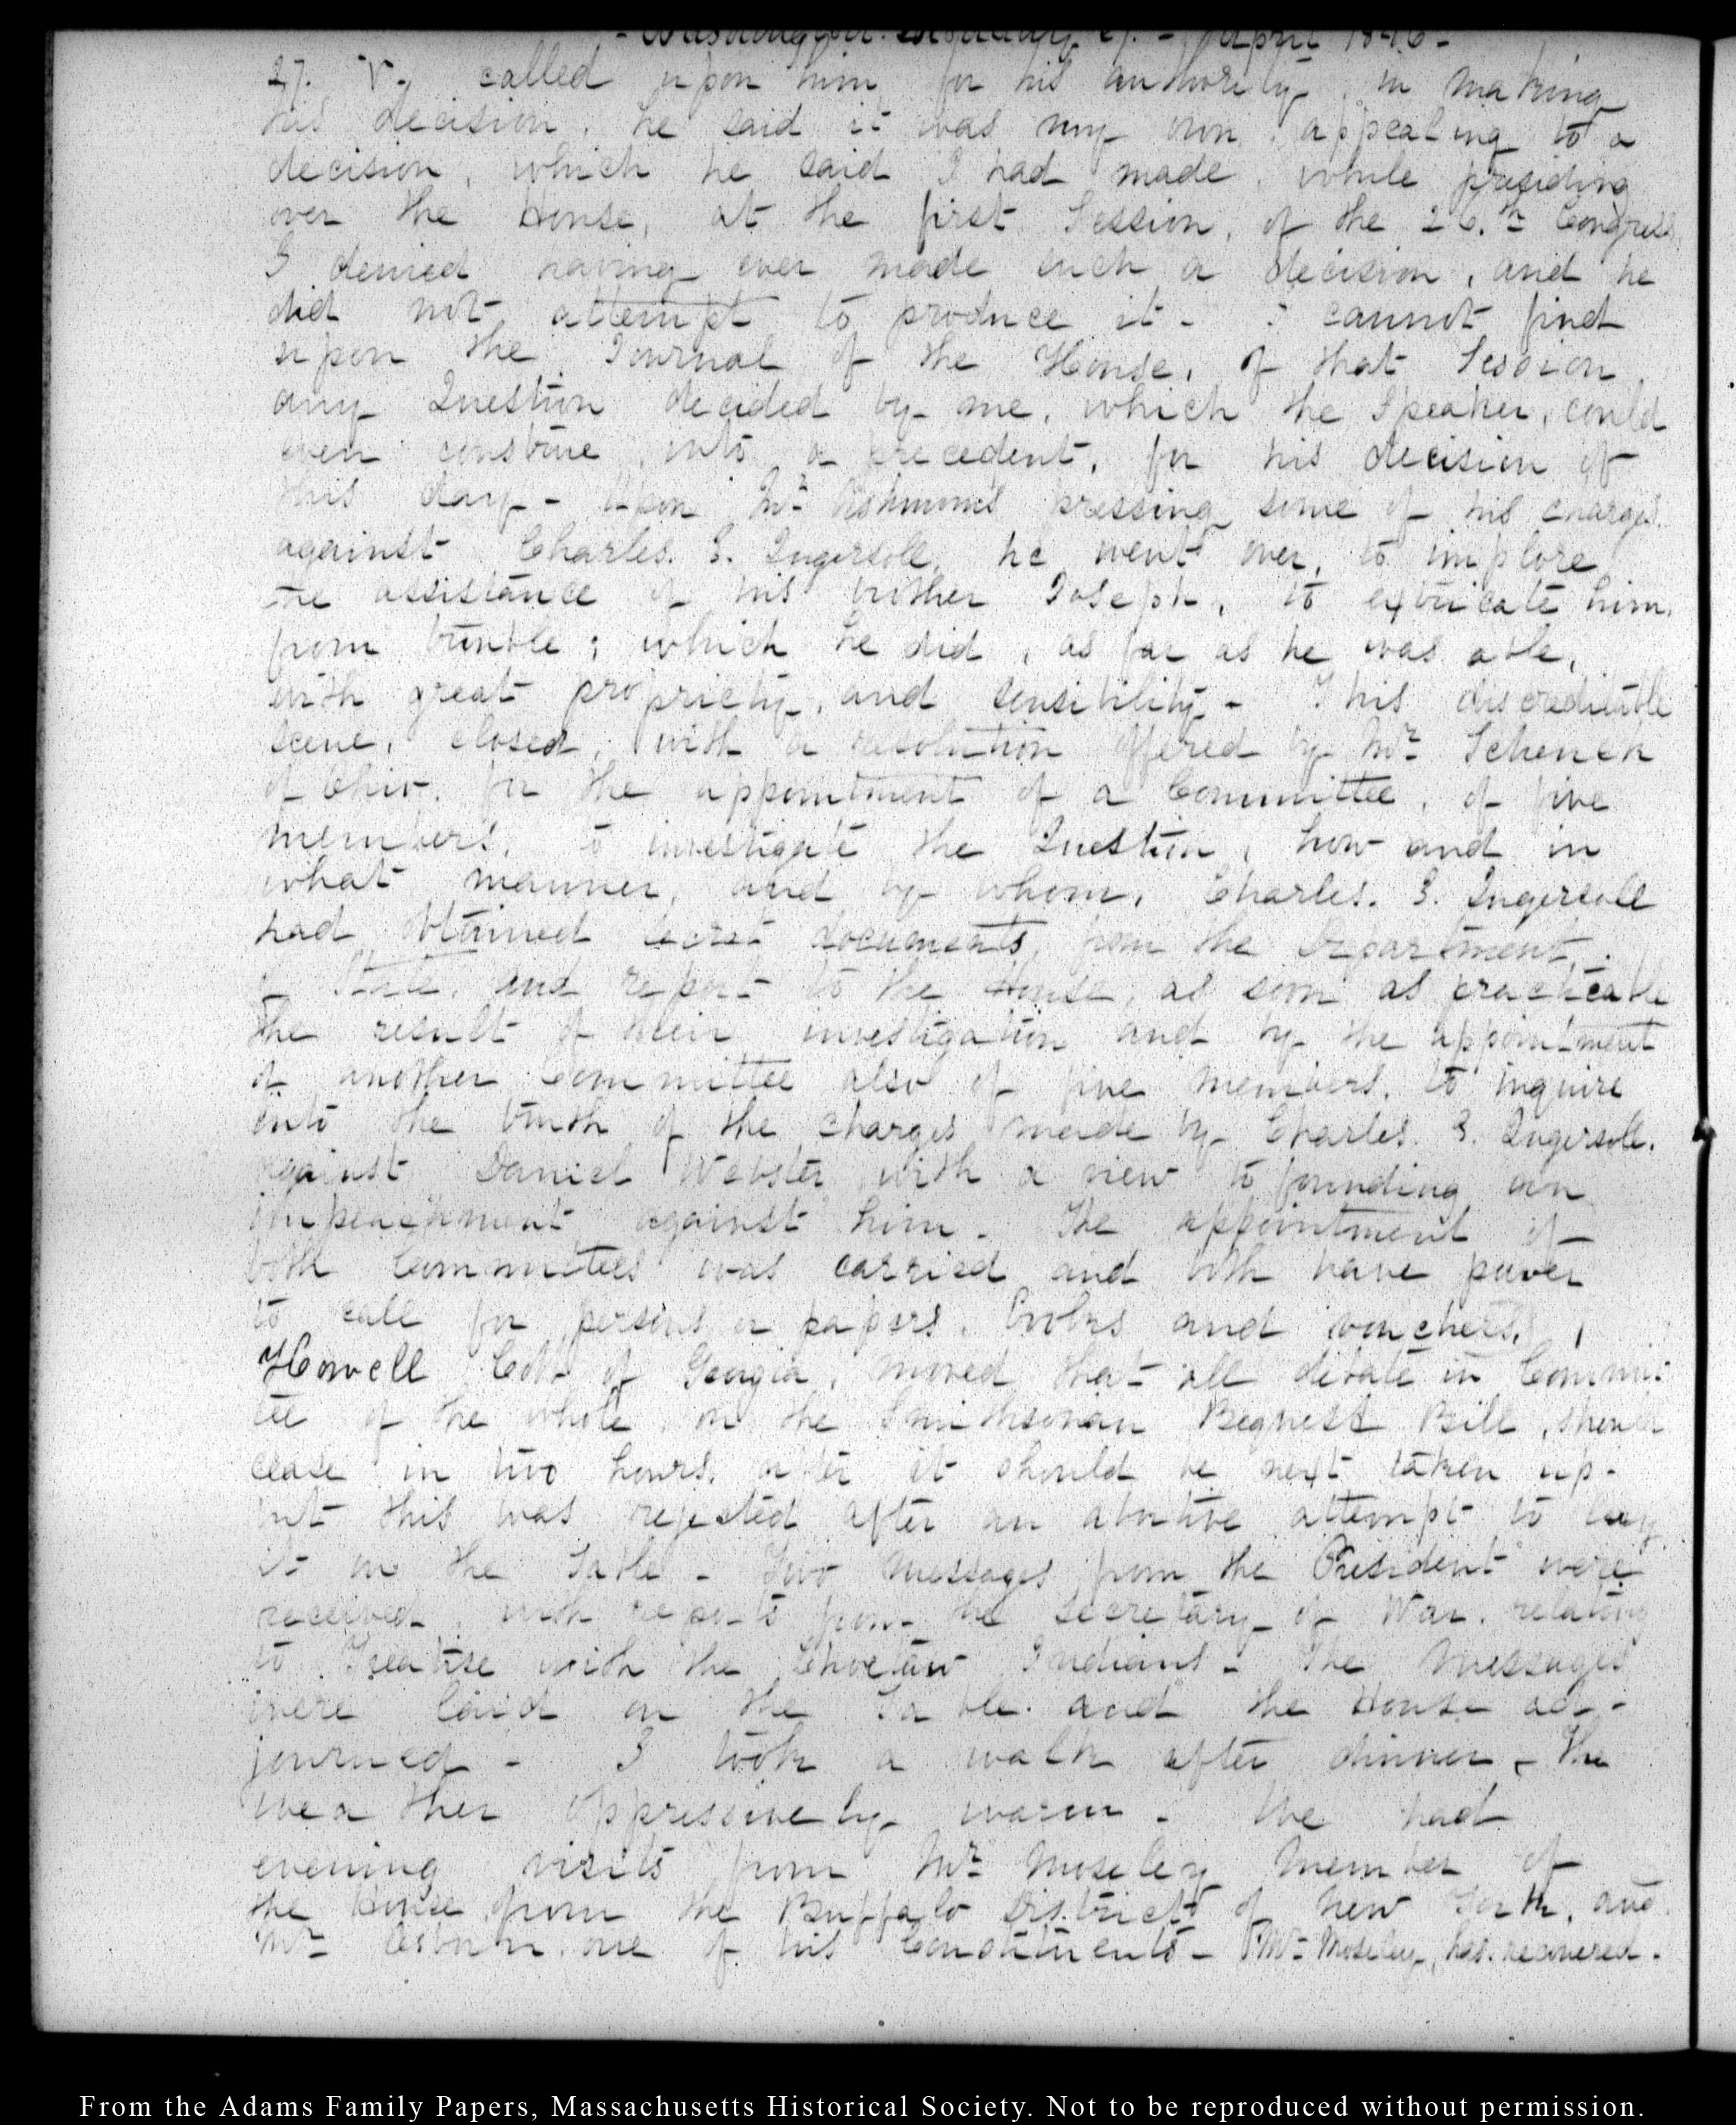 - Washington. Monday 27. - April 1846 -
27. V. I called upon him for his authority, in making
his decision. he said it was my own. appealing to a
decision, which he said I had made, while presiding
over the House, at the first Session, of the 26.th Congress.
I denied having ever made such a decision, and he
did not attempt to produce it - I cannot find
upon the Journal of the House, of that Session
any Question decided by me, which the Speaker, could
even construe, into a precedent, for his decision of
this day - Upon Mr. Ashmun's pressing some of his charges
against Charles. J. Ingersoll, he went over, to implore
the assistance of his brother Joseph, to extricate him.
from trouble; which he did, as far as he was able,
with great propriety, and sensibility - This discreditable
scene, closed, with a resolution offered by Mr. Schenck
of Ohio, for the appointment of a Committee, of five
members, to investigate the Question, how and in
what manner, and by whom, Charles. J. Ingersoll
had obtained secret documents, from the Department,
of State, and report to the House, as soon as practicable
the result of their investigation and by the appointment
of another Committee also of five members, to inquire
into the truth of the charges made by Charles J. Ingersoll.
against Daniel Webster with a view to founding an
impeachment against him - The appointment of
both Committees was carried and both have power
to call for persons or papers. Books and vouchers.
Howell Cobb of Georgia, moved that all debate in Commit:
tee of the whole, on the Smithsonian Bequest Bill, should
cease in two hours, after it should be next taken up -
but this was rejected after an abortive attempt to lay
it on the Table - Two messages from the President were
received, with reports from the Secretary of War, relating
to Treatise with the Choctaw Indians - The Messages
were laid on the Table. and the House ad-
journed - I took a walk after dinner - The
weather oppressively warm - We had
evening visits from Mr. Moseley Member of
the House from the Buffalo District of New York, and
Mr. Osborn, one of his Constituents - Mr. Moseley, has recovered -
From the Adams Family Papers, Massachusetts Historical Society. Not to be reproduced without permission.